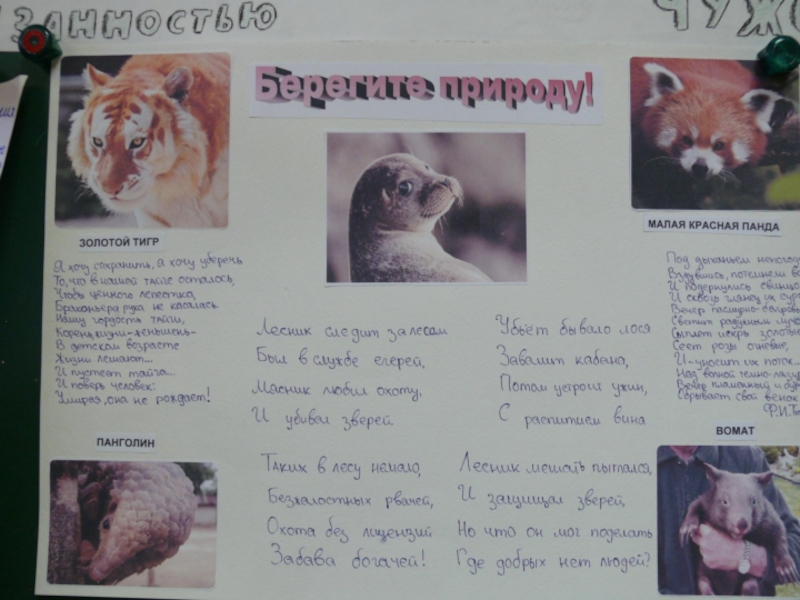 ЗАННОСТЬЮ
ЧУЖО
Берегите природу!
ЗОЛОТОЙ ТИГР
Я хочу сохранить, я хочу уберечь
То, что в нашей тайге осталось,
Чтоб ценного лепестка,
Браконьера рука не касалась
Нашу гордость тайги,
Корень жизни-женьшень-
В детском возрасте
Жизни лешают...
И пустеет тайга...
И поверь человек:
Умирая, она не рождает!
ПАНГОЛИН
Лесник следит за лесом
Был в службе егерей,
Мясник любил охоту,
И убивал зверей
Таких в лесу немало,
Безжалостных рвачей,
Охота без лицензий
Забава богачей!
Убьёт бывало лося
Завалит кабана,
Потом устроит ужин,
С распитием вина
Лесник мешать пытался,
И защищал зверей,
Но что он мог поделать
Где добрых нет людей?
МАЛАЯ КРАСНАЯ ПАНДА
Под дыханьем непогоды
Вздувшись, потемнели во
И подернулись свинцо
И сквозь глянец их суро
Вечер пасмурно-багров
Светит радужным лучо
Сыплет искры золотые
Сеет розы огневые,
И-уносит их поток...
Над волной темно-лазур
Вечер пламенный и бур
Обрывает свой венок
Ф.И.Тю
ВОМАТ